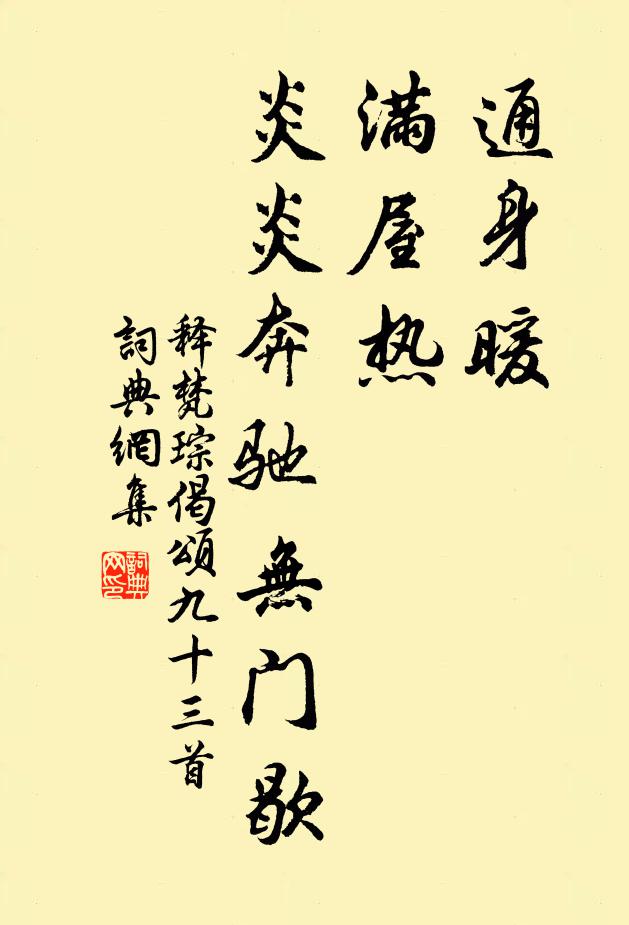 通身暖
满屋热
炎炎奔驰無门歇
释梵琮偈頌九十三首
詞典網集
詞典网印